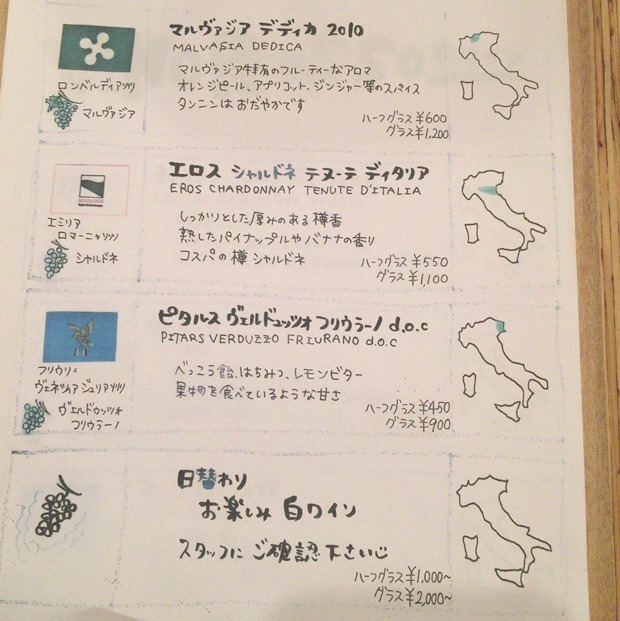 マルヴァジア デディカ 2010
MALVASIA DEDICA
マルヴァジア特有のフルーティーなアロマ
オレンジピール、アプリコット、ジンジャー等のスパイス
タンニンは おだやかです
ハーフグラス ¥600
グラス ¥1,200
ロンバルディア州
マルヴァジア
エロス シャルドネ テヌーテ ディタリア
EROS CHARDONNAY TENUTE D'ITALIA
しっかりとした厚みのある樽香
熟したパイナップルやバナナの香り
コスパの樽シャルドネ
ハーフグラス ¥550
グラス ¥1,100
エミリア
ロマーニャ州
シャルドネ
ピタルス ヴェルドュッツォ フリウラーノ d.o.c
PITARS VERDUZZO FRIURANO d.o.c
べっこう飴、はちみつ、レモンビター
果物を食べているような甘さ
ハーフグラス ¥450
グラス ¥900
フリウリ=
ヴェネツィアジュリア州
ヴェルドゥッツォ
フリウラーノ
日替わり
お楽しみ 白ワイン
スタッフに ご確認 下さい
ハーフグラス ¥1,000~
グラス ¥2,000~